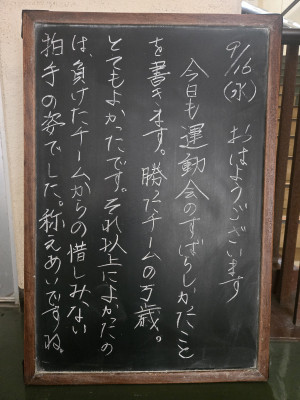 9/16(水) おはようございます
今日も運動会のすばらしかたこと
を書きます。勝ったチームの万歳。
とてもよかったです。それ以上によかったの
は、負けたチームからの惜しみない
拍手の姿でした。称えあいですね。